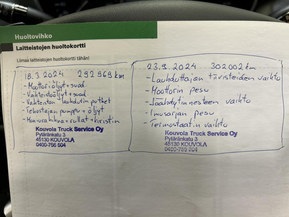 Huoltovihko
Laitteistojen huoltokortti
Liimaa laitteistojen huoltokortti tähän!
18.3.2024 292969km
- Moottoriöljyt + suod.
- Vaihteistoöljyt + suod.
- Vaihteiston lauhdutin putket
- öljyt
Kouvola Truck Service Oy
Pytäränkatu 3
45130 KOUVOLA
0400-756 504
23.9.2024 302002km
- Lauhduttajan tiivisteiden vaihto
- Moottorin pesu
- Jäähdytinnesteen vaihto
- Imusarjan pesu
- Termostaatin vaihto
Kouvola Truck Service Oy
45130 KOUVOLA
0400-756 504